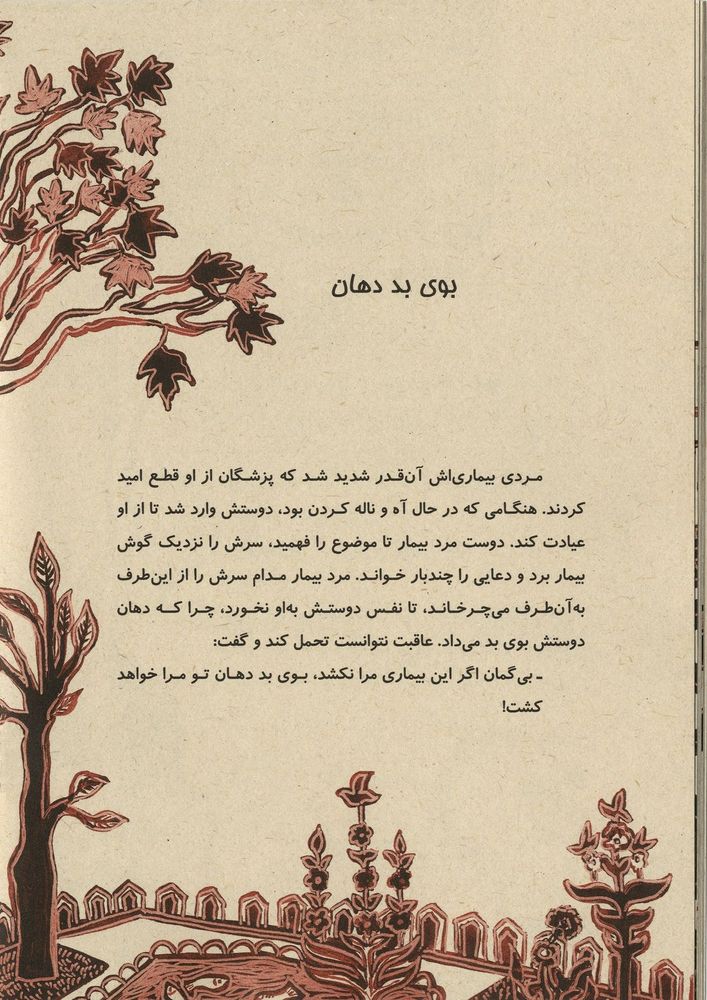 بوی بد دهان
مردی بیماری‌اش آن‌قدر شدید شد که پزشگان از او قطع امید
کردند. هنگامی که در حال آه و ناله کردن بود، دوستش وارد شد تا از او
عیادت کند. دوست مرد بیمار تا موضوع را فهمید، سرش را نزدیک گوش
بیمار برد و دعایی را چندبار خواند. مرد بیمار مدام سرش را از این‌طرف
به‌آن‌طرف می‌چرخاند، تا نفس دوستش به‌او نخورد، چرا که دهان
دوستش بوی بد می‌داد. عاقبت نتوانست تحمل کند و گفت:
ـ بی‌گمان اگر این بیماری مرا نکشد، بوی بد دهان تو مرا خواهد
کشت!